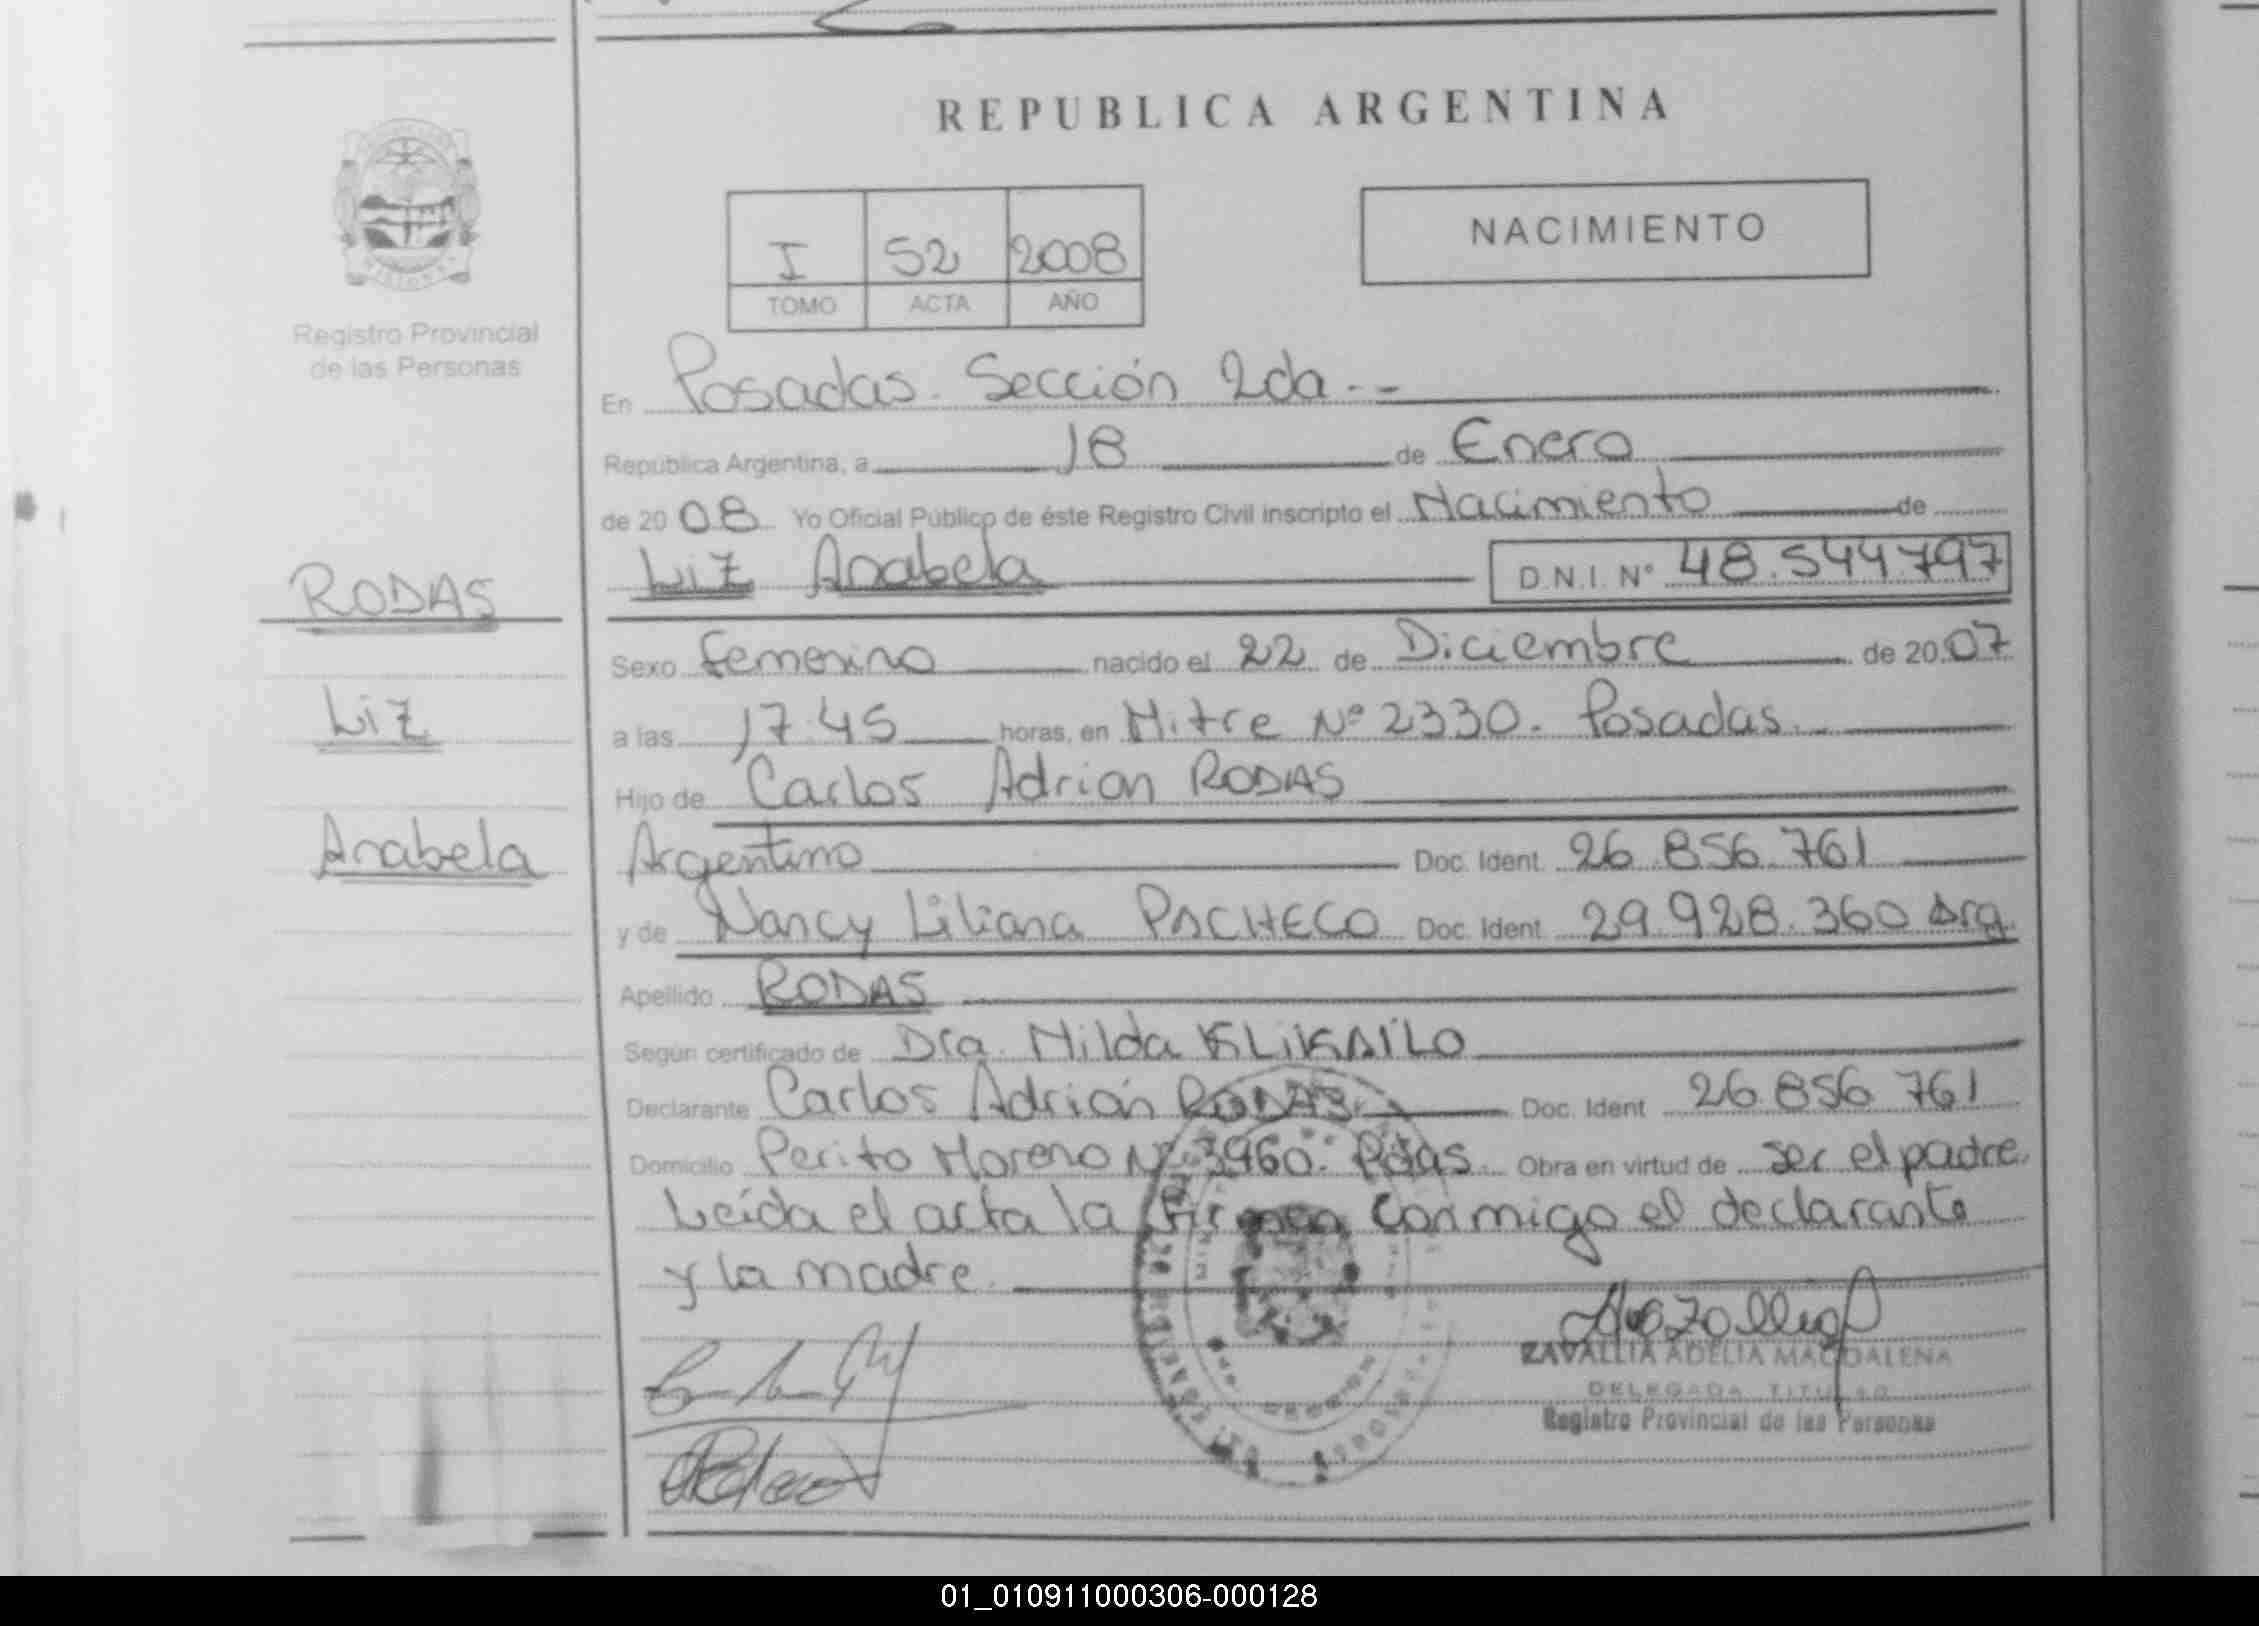 REPUBLICA ARGENTINA
NACIMIENTO
I 52 2008
TOMO ACTA AÑO
Registro Provincial
de las Personas
En Posadas. Sección 2da.-
República Argentina, a 18 de Enero
de 2008 Yo Oficial Público de éste Registro Civil inscripto el Nacimiento de
Liz Anabela D.N.I. Nº 48.544.797
RODAS
Liz
Anabela
Sexo femenino nacido el 22 de Diciembre de 2007
a las 17.45 horas, en Mitre Nº 2330. Posadas.
Hijo de Carlos Adrian RODAS
Argentino Doc. Ident. 26.856.761
y de Nancy Liliana PACHECO Doc. Ident. 29.928.360 Arg.
Apellido RODAS
Según certificado de Dra. Nilda KLIKAILO
Declarante Carlos Adrián RODAS Doc. Ident 26.856.761
Domicilio Perito Moreno Nº 3960. Pdas. Obra en virtud de ser el padre.
Leída el acta la firman conmigo el declarante
y la madre.
ZAVALLIA ADELIA MAGDALENA
DELEGADA TITULAR
Registro Provincial de las Personas
01_010911000306-000128